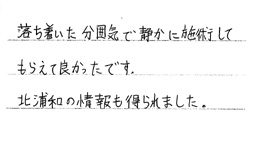 落ち着いた分囲気で静かに施術して
もらえて良かったです.
北浦和の情報も得られました。